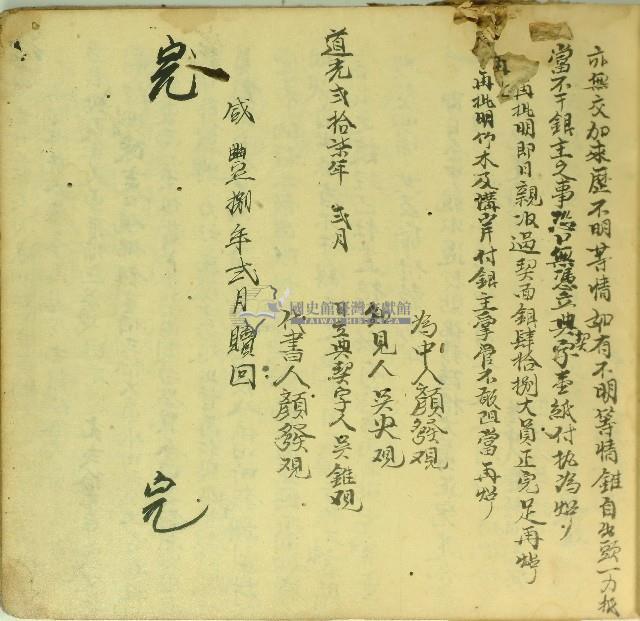 亦無交加來歷不明等情如有不明等情錐自出頭一力抵
當不干銀主之事恐口無憑立典契字壹紙付执為炤
再批明即日親收過契面銀肆拾捌大員正完足再炤
再批明竹木及溝岸付銀主掌管不敢阻當再炤
為中人顏發观
知見人吳央观
道光弍拾柒年 弍月
立典契字人吳錐观
代書人顏發观
咸豐捌年弍月贖回
完
完
國史館臺灣文獻館
TAIWAN HISTORICA